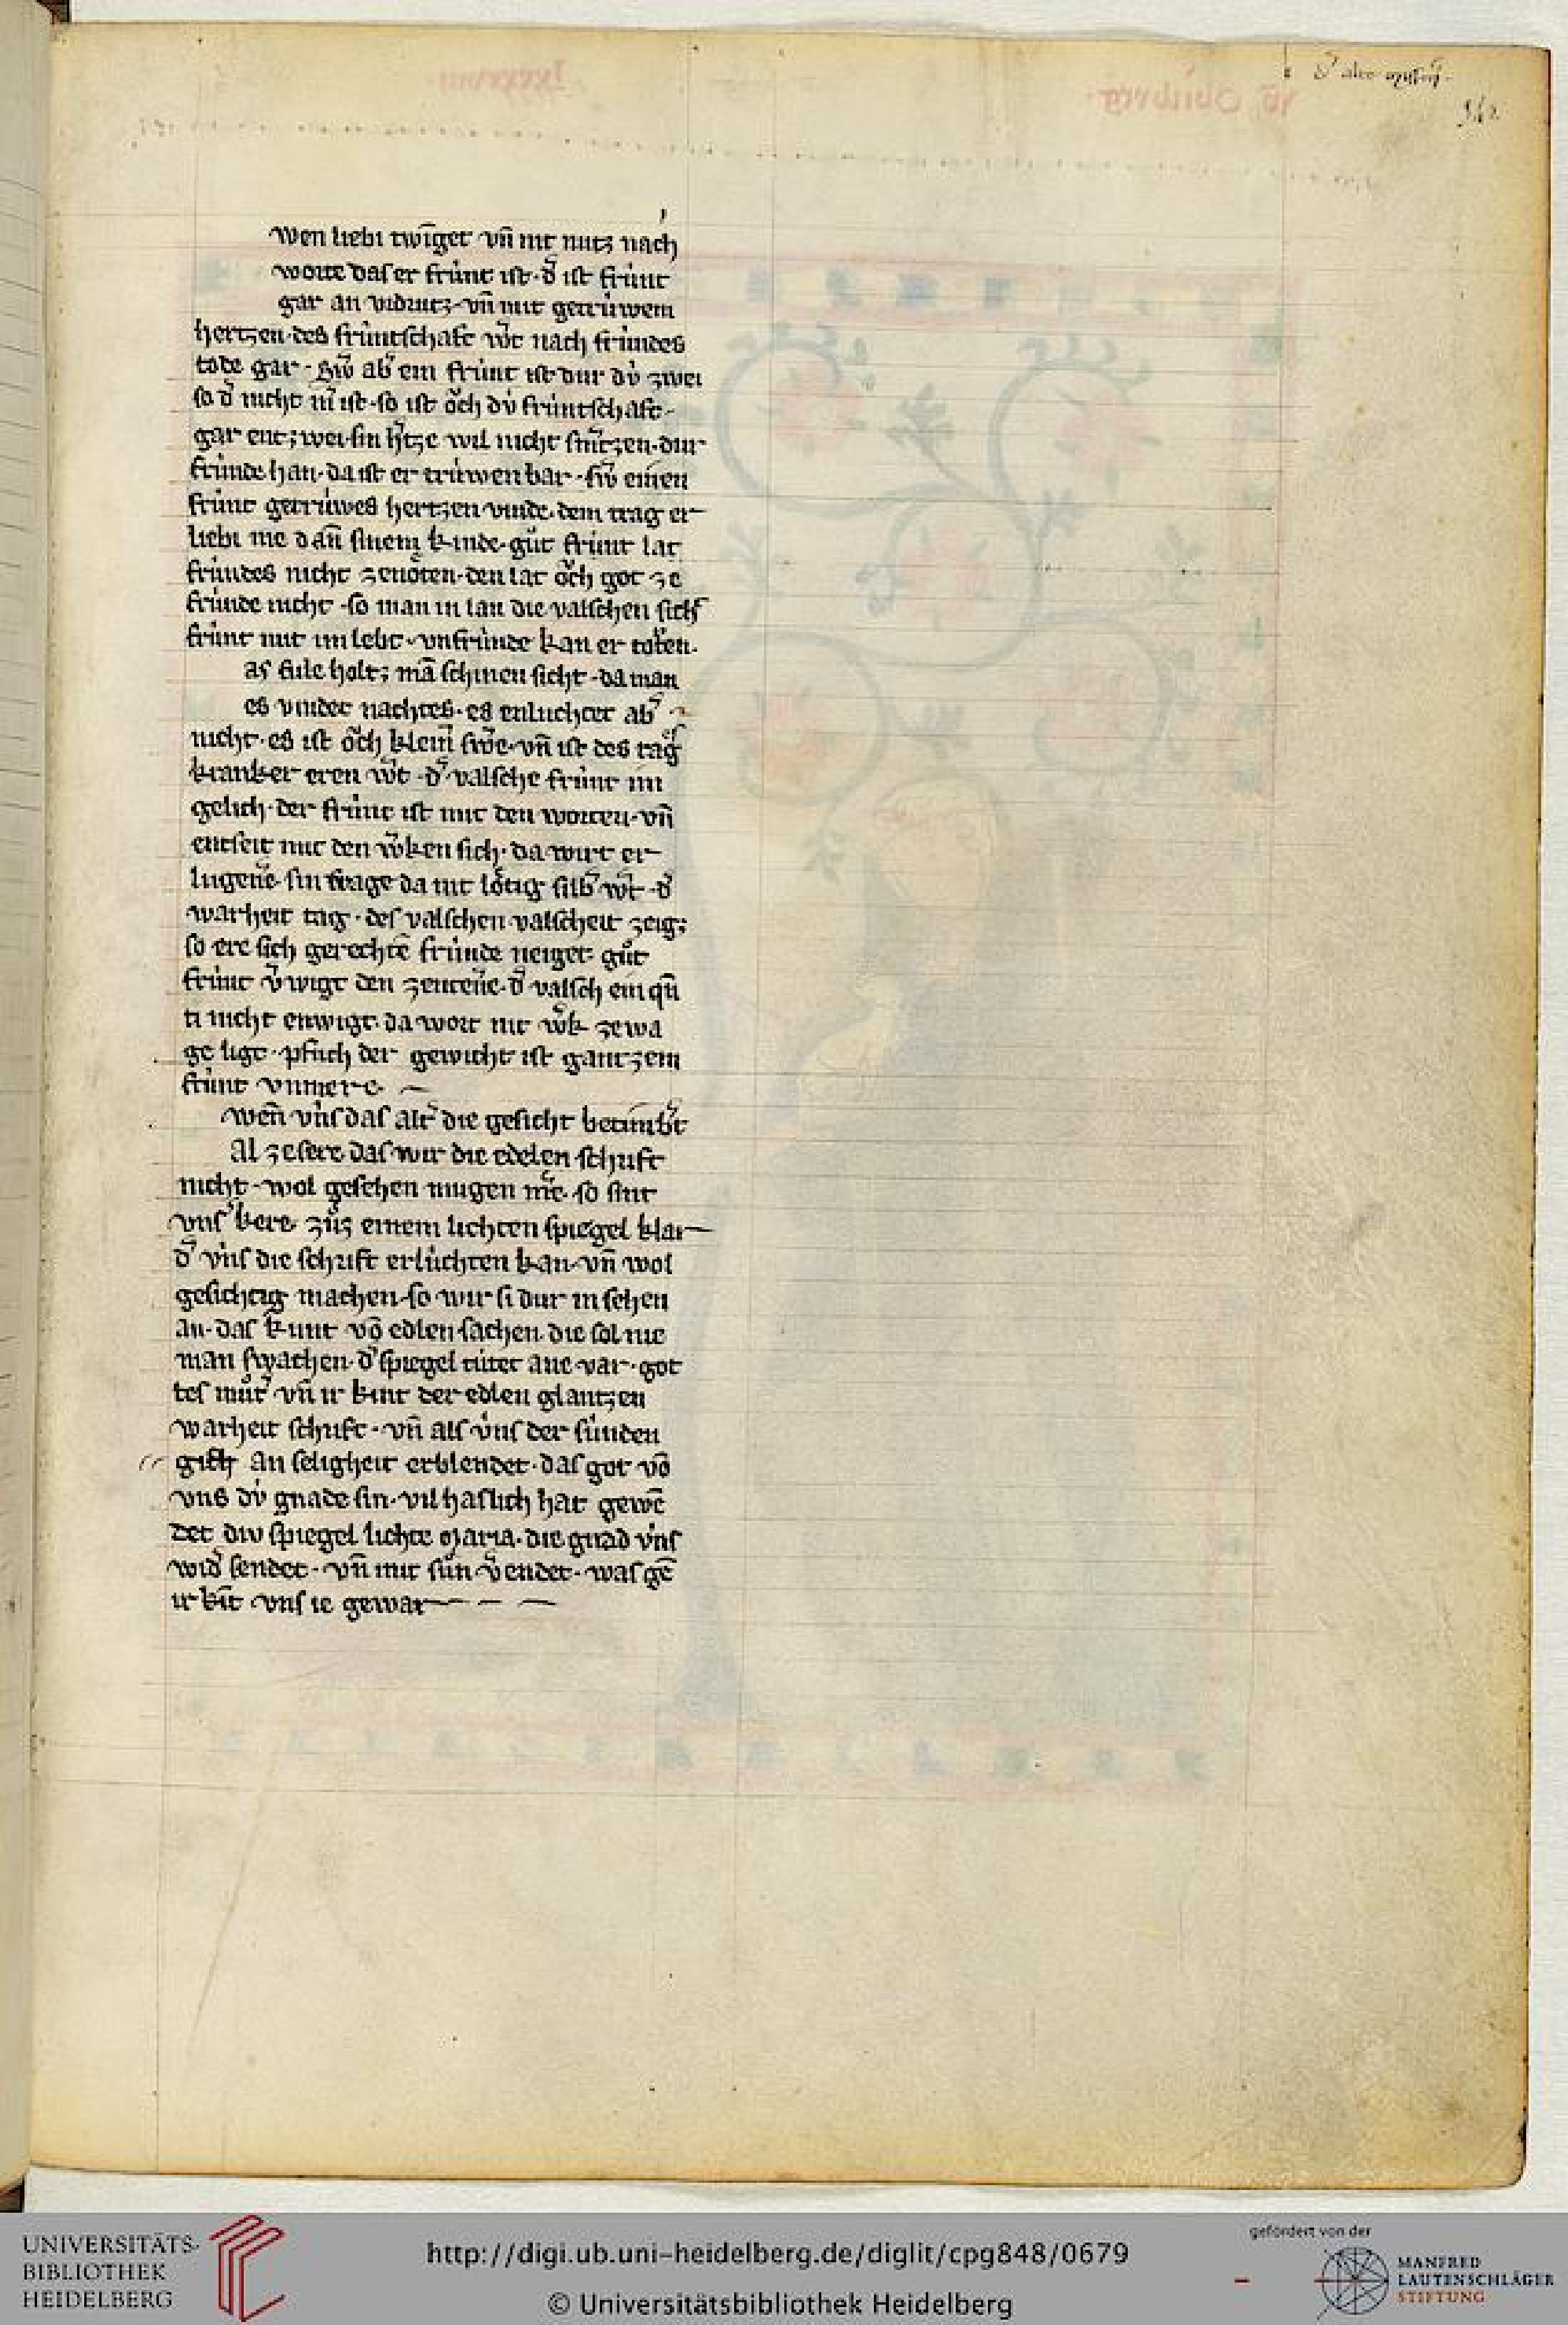 d᷑ alte mysner.
wen liebi twīget vn̄ nit nutz nach
worte das er frúnt ist. d᷑ ist frúnt
gar an vrdrutz. vn̄ mit getrúwem
hertzen. des frúntschaft w᷑t nach frúndes
tode gar. sw᷑ ab᷑ ein frúnt ist dur dú zwei
so d᷑ nicht m᷑ ist. so ist oͮch dú frúntschaft.
gar entzwei. sin h᷑tze wil nicht smtzen. dur
frúnde han. da ist er trúwen bar. sw᷑ einen
frúnt getrúwes hertzen vinde. dem trag er
liebi me dan̄ sinem kinde. guͦt frúnt lat
frúndes nicht zenoͤten. den lat oͮch got ze
frúnde nicht. so man in lan die valschen sich᷑
frúnt mit im lebt. vnfrúnde kan er toͤten.
as fule holtz mā schinen sicht. da man
es vindet nachtes. es enluchtet ab᷑
nicht. es ist oͮch klein̄ sw᷑e. vn̄ ist des tages
kranker eren w᷑t. d᷑ valsche frúnt im
gelich. der frúnt ist mit den worten. vn̄
entseit mit den w᷑ken sich. da wirt er
lugen᷑e. sin wage da nit loͤtig silb᷑ w᷑t. d᷑
warheit tag. des valschen valscheit zeigz
so ere sich gerechtē frúnde neiget. guͦt
frúnt v᷑wigt den zenten᷑e. d᷑ valsch ein qn̄
ti nicht enwigt. da wort nit w᷑k zewa
ge ligt. pfuch der gewicht ist gantzem
frúnt vnmere.
wen̄ vns das alt᷑ die gesicht betimb᷑t
al zesere. das wir die edelen schrift
nicht. wol gesehen mugen m᷑e. so sint
vns᷑ kere. zuͦz einem lichten spiegel klar
d᷑ vns die schrift erlúchten kan. vn̄ wol
gesichtig machen. so wir si dur in sehen
an. das kunt vō edlen sachen. die sol nie
man swachen. d᷑ spiegel tútet ane var. got
tes muͦt᷑ vn̄ ir kint der edlen glantzen
warheit schrift. vn̄ als vns der súnden
gift an seligheit erblendet. das got vō
vns dú gnade sin. vil haslich hat gewē
det diu spiegel lichte maria. die gnad vns
wid᷑ sendet. vn̄ mit suͦn v᷑endet. was gē
ir kīt vns ie gewar
UNIVERSITÄTS-
BIBLIOTHEK
HEIDELBERG
http://digi.ub.uni-heidelberg.de/diglit/cpg848/0679
© Universitätsbibliothek Heidelberg
gefördert von der
MANFRED
LAUTENSCHLÄGER
STIFTUNG